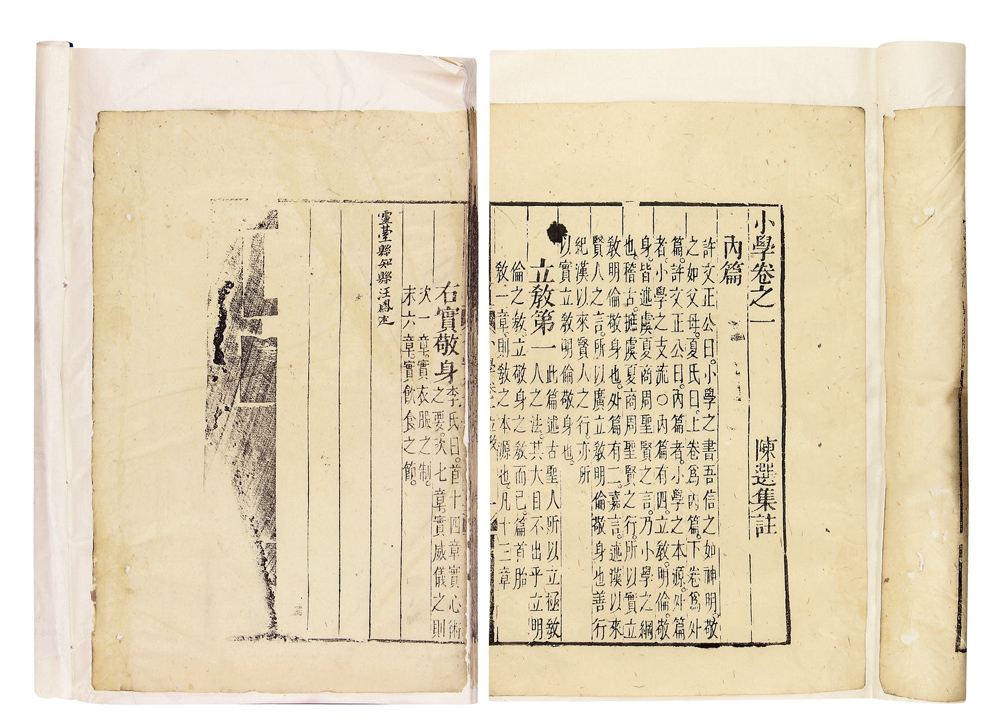 小學卷之一
陳選集註
內篇
許文正公曰。小學之書吾信之如神明。敬
之如父母。夏氏曰。上卷爲內篇。下卷爲外
篇。許文正公曰。內篇者。小學之本源。外篇
者小學之支流〇內篇有四。立敎。明倫。敬
身。皆述虞夏商周聖賢之言。乃小學之綱
也。稽古。摭虞夏商周聖賢之行。所以實立
敎明倫敬身也。外篇有二。嘉言。述漢以來
賢人之言。所以廣立敎明倫敬身也善行
紀漢以來賢人之行亦所
以實立敎明倫敬身也。
立敎第一
此篇述古聖人所以立極敎
人之法。其大目不出乎立明
倫之敎立敬身之敎而已。篇首胎
敎一章。則敎之本源也。凡十三章
右實敬身
李氏曰。首十四章實心術
之要次七章實威儀之則
次一章實衣服之制。
末六章實飲食之節。
靈臺縣知縣汪